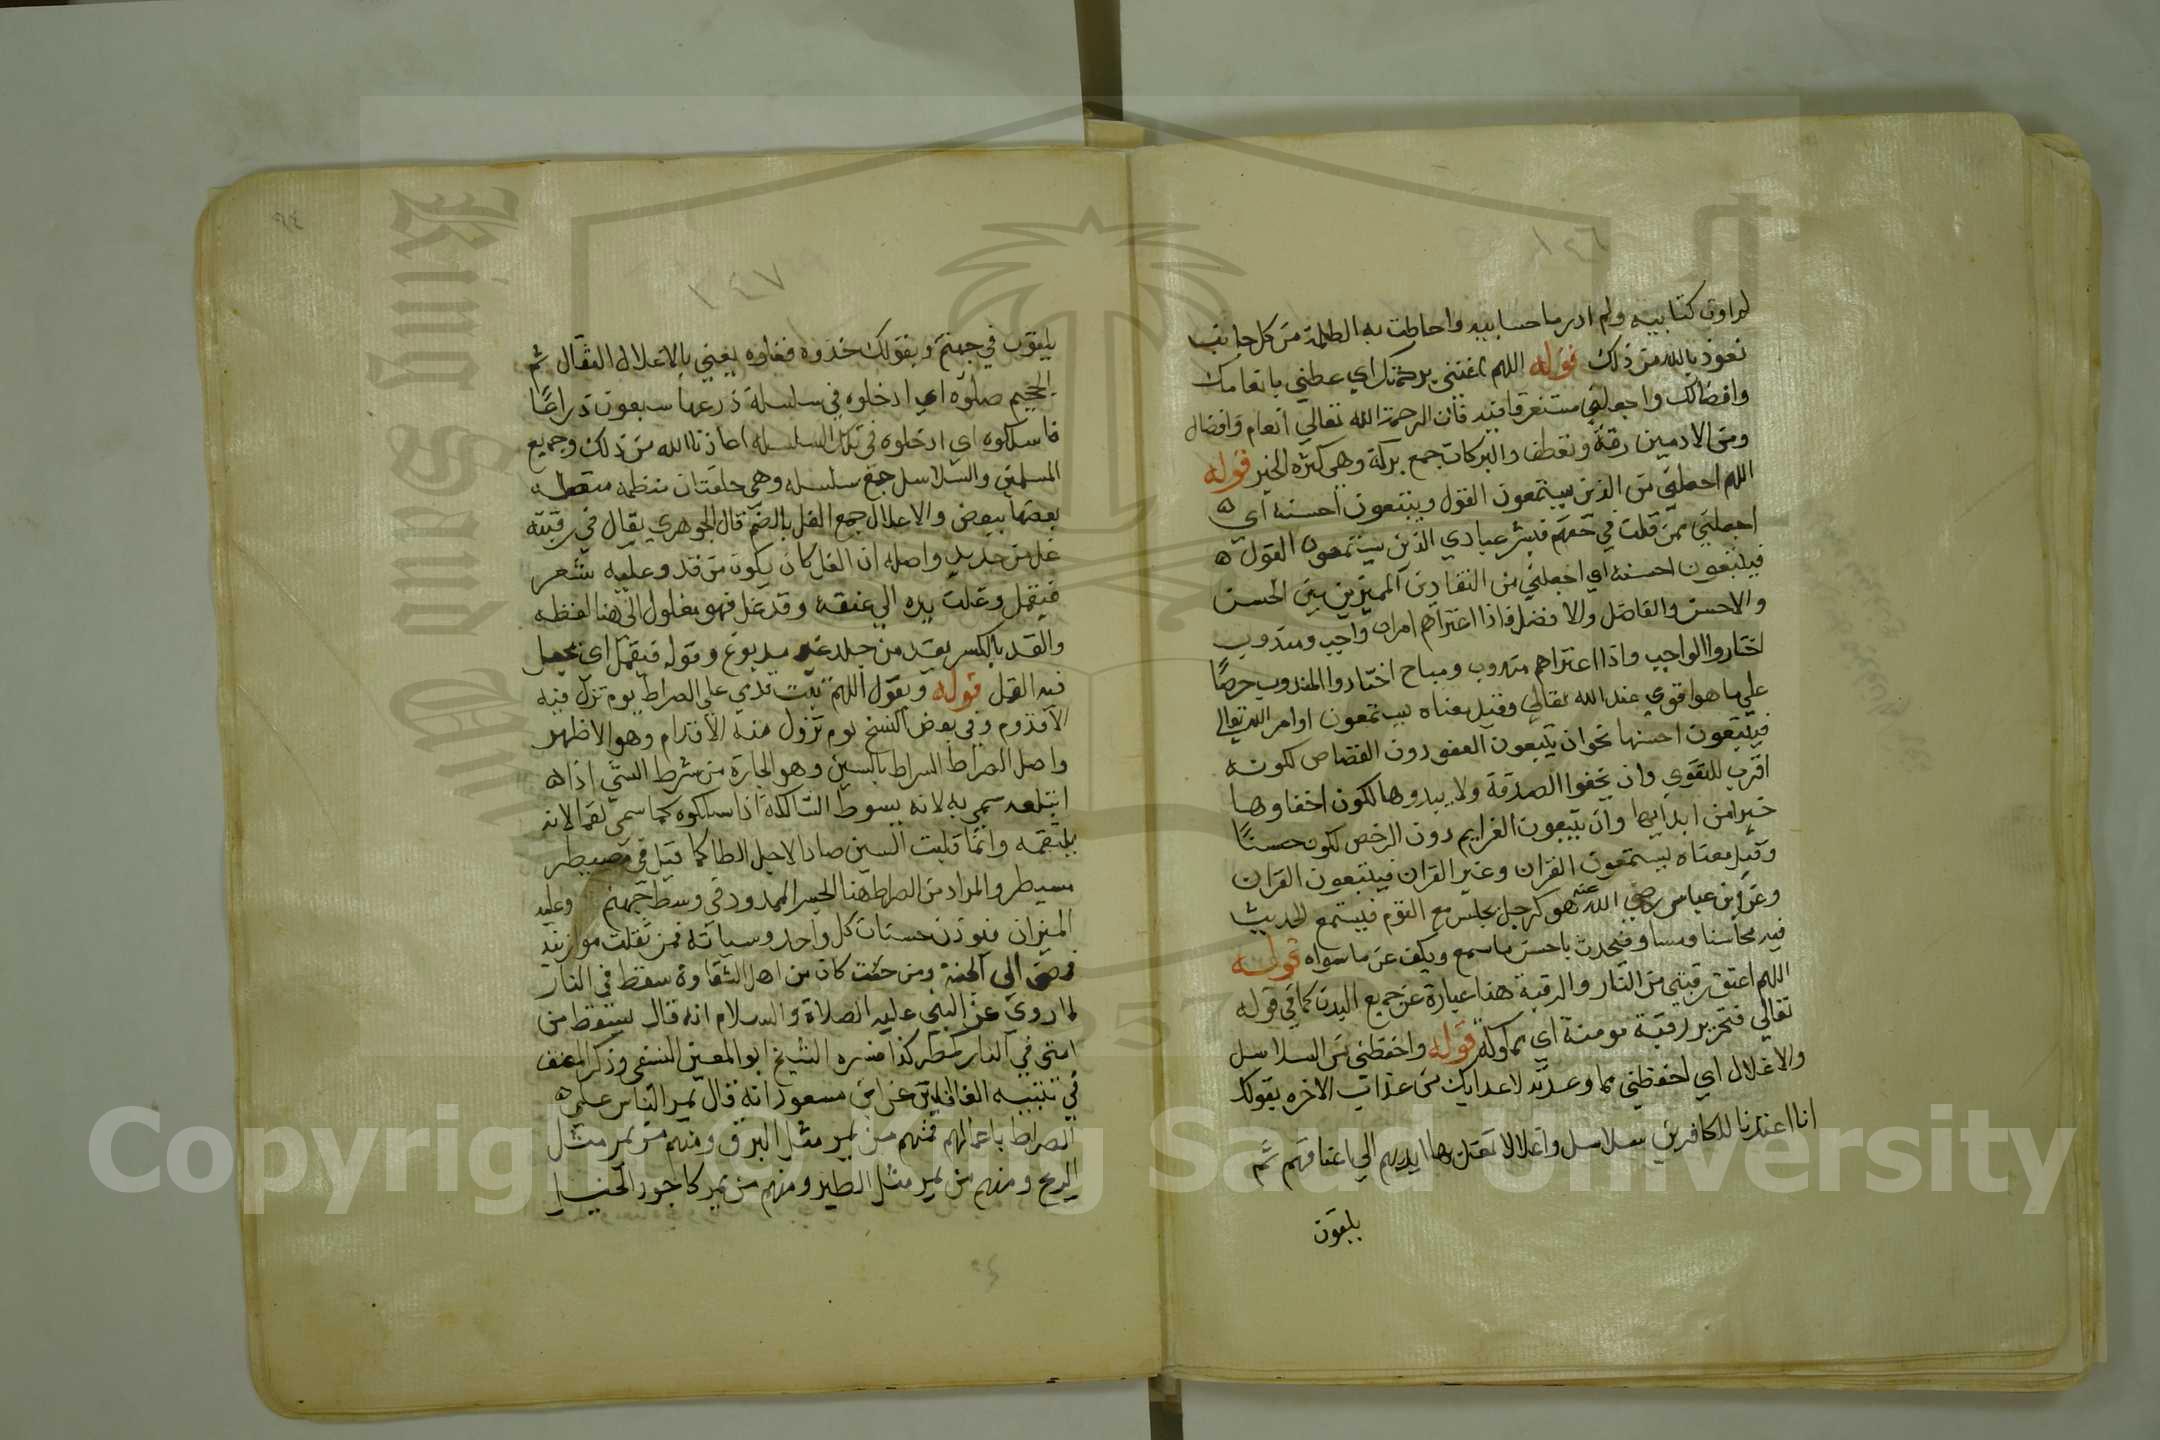 لم اوت كتابيه ولم ادر ما حسابيه واحاطت به الظلمة من كل جانب
نعوذ بالله من ذلك قوله اللهم غشني برحمتك اي عطني بانعامك
وافضالك واجعلني مستغرقا فيه فان الرحمة الله تعالي انعام وافضال
ومن الادمين رقة وتعطف والبركات جمع بركة وهي كثرة الخير قوله
اللهم اجعلني من الذين يستمعون القول ويتبعون احسنه اي ه
اجعلني ممن قلت في حقهم فبشر عبادي الذين يستمعون القول ه
فيتبعون احسنه اي اجعلني من النقادين المميزين بين الحسن
والاحسن والفاضل والافضل فاذا اعتراهم امران واجب ومندوب
اختاروا الواجب واذا اعتراهم مندوب ومباح اختاروا المندوب حرصا
علي ما هو اقوي عند الله تعالي وقيل معناه يستمعون اوامر الله تعالي
فيتبعون احسنها نحو ان يتبعون العفو دون القصاص لكونه
اقرب للتقوي وان يخفوا الصدقة ولا يبدوها لكون اخفاوها
خيرا من ابدايها وان يتبعون العزايم دون الرخص لكونه حسنا
وقيل معناه يستمعون القران وغير القران فيتبعون القران
وعن ابن عباس رضي الله عنه هو كرجل يجلس مع القوم فيستمع الحديث
فيه محاسنا ومساو فيحدث باحسن ما سمع ويكف عن ما سواه قوله
اللهم اعتق رقبتي من النار والرقبة هنا عبارة عن جميع البدن كما في قوله
تعالي فتحرير رقبة مومنة اي مملوكة قوله واحفظني من السلاسل
والاغلال اي احفظني مما وعدته لاعدايك من عذاب الاخره بقولك
انا اعتدنا للكافرين سلاسل واغلالا تغل بها ايديهم الي اعناقهم ثم
يلقون
يلقون في جهنم وبقولك خذوه فغلوه يعني بالاغلال الثقال ثم
الجحيم صلوه اي ادخلوه في سلسلة ذرعها سبعون ذراعا
فاسلكوه اي ادخلوه في تلك السلسله اعاذنا الله من ذلك وجميع
المسلمين والسلاسل جمع سلسله وهي حلقتان منظمه متصله
بعضها ببعض والاغلال جمع الغل بالضم قال الجوهري يقال في رقبته
غل من حديد واصله ان الغل كان يكون من قد وعليه شعر
فيقمل وغلت يده الي عنقه وقد غل فهو مغلول الي هنا لفظه
والقد بالكسر يقد من جلد غير مدبوغ وقوله فيقمل اي يحصل
فيه القمل قوله ويقول اللهم ثبت قدمي علي الصراط يوم تزل فيه
الاقدام وفي بعض النسخ يوم تزول منه الاقدام وهو الاظهر
واصل الصراط السراط بالسين وهو الجارة من سرط الشي اذاه
ابتلعه سمي به لانه يسوط السالكة اذا سلكوه كما سمي لقما لانه
يلتقمه وانما قلبت السين صادا لاجل الطا كما قيل في مصيطر
مسيطر والمراد من الصراط هنا الجسر الممدود في وسط جهنم وعليه
الميزان فيوزن حسنات كل واحد وسياته فمن ثقلت موازينه
مضي الي الجنة ومن خفت كان من اهل الشقاوة سقط في النار
لما روي عن النبي عليه الصلاة والسلام انه قال يسقط من
امتي في النار كمطر كذا فسره الشيخ ابو المعين النسفي وذكر المصنف
في تنبيه الغافلين عن ابن مسعود انه قال يمر الناس علي ه
الصراط باعمالهم فمنهم من يمر مثل البرق ومنهم من يمر مثل
الريح ومنهم من يمر مثل الطير ومنهم من يمر كاجود الخيل
King Saud University
1957
Copyright © King Saud University